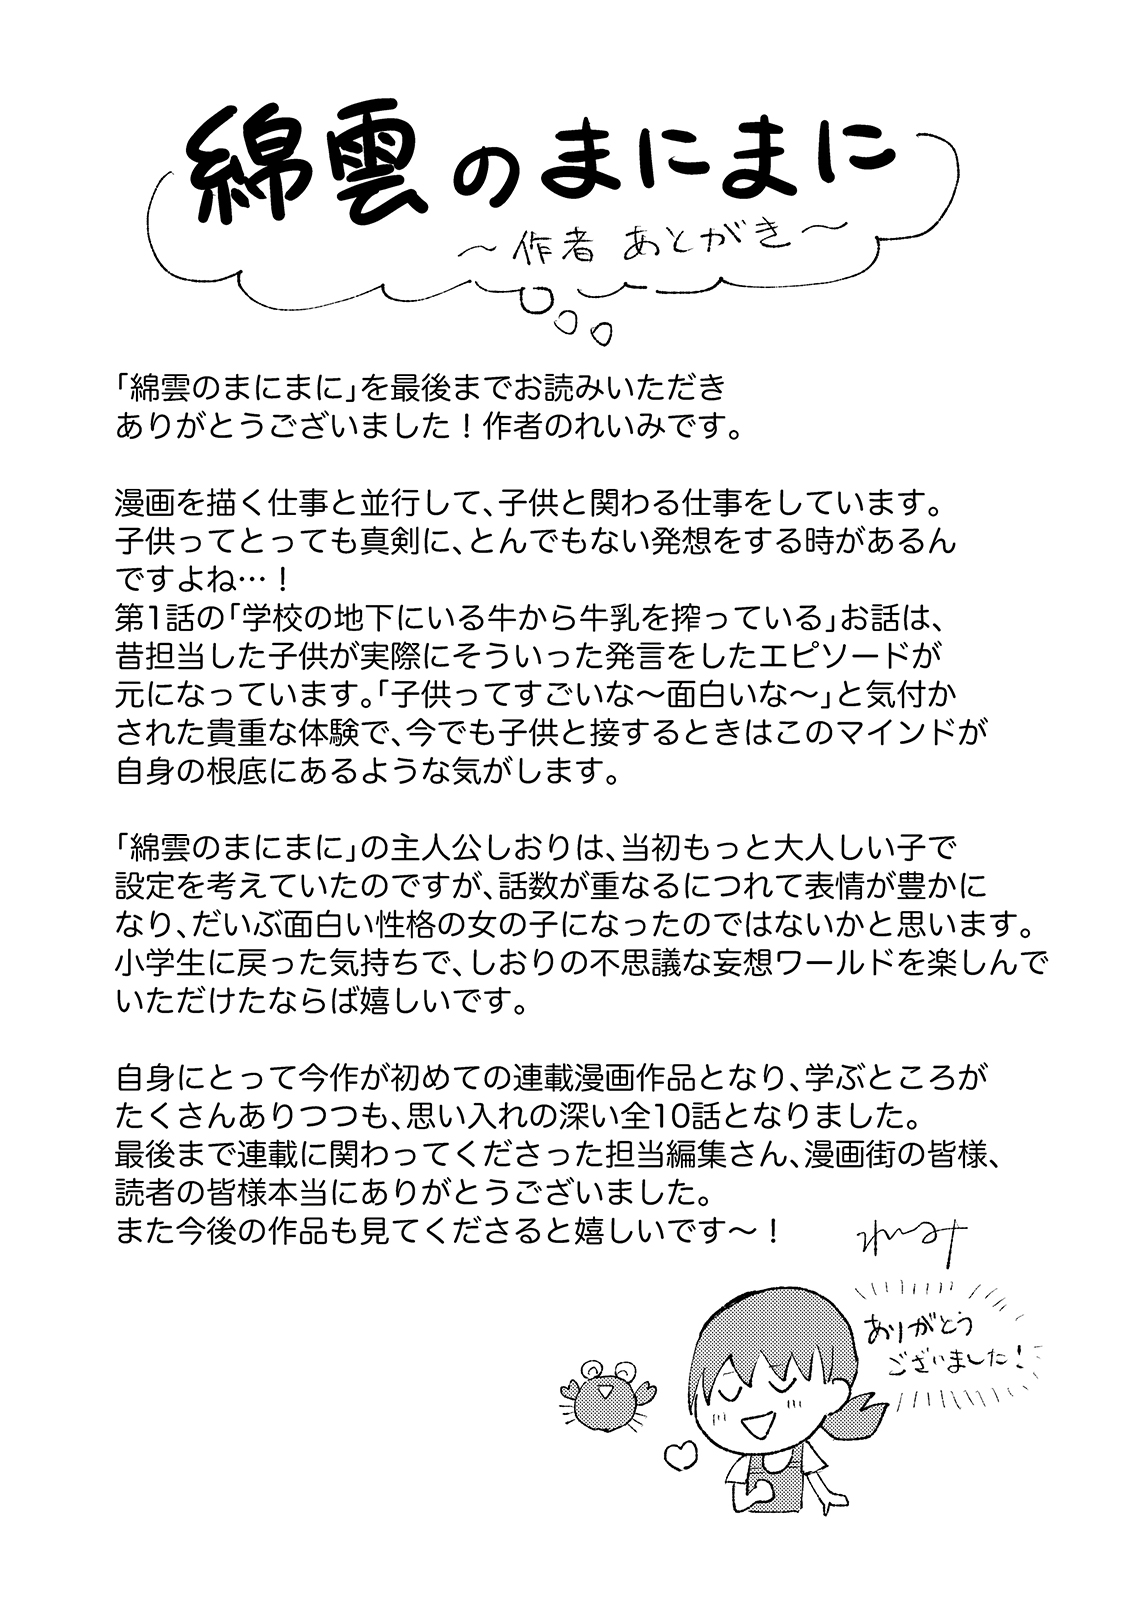 綿雲のまにまに
〜作者 あとがき〜
「綿雲のまにまに」を最後までお読みいただき
ありがとうございました！作者のれいみです。
漫画を描く仕事と並行して、子供と関わる仕事をしています。
子供ってとっても真剣に、とんでもない発想をする時があるん
ですよね…！
第1話の「学校の地下にいる牛から牛乳を搾っている」お話は、
昔担当した子供が実際にそういった発言をしたエピソードが
元になっています。「子供ってすごいな〜面白いな〜」と気付か
された貴重な体験で、今でも子供と接するときはこのマインドが
自身の根底にあるような気がします。
「綿雲のまにまに」の主人公しおりは、当初もっと大人しい子で
設定を考えていたのですが、話数が重なるにつれて表情が豊かに
なり、だいぶ面白い性格の女の子になったのではないかと思います。
小学生に戻った気持ちで、しおりの不思議な妄想ワールドを楽しんで
いただけたならば嬉しいです。
自身にとって今作が初めての連載漫画作品となり、学ぶところが
たくさんありつつも、思い入れの深い全10話となりました。
最後まで連載に関わってくださった担当編集さん、漫画街の皆様、
読者の皆様本当にありがとうございました。
また今後の作品も見てくださると嬉しいです〜！
れいみ
ありがとう
ございました！